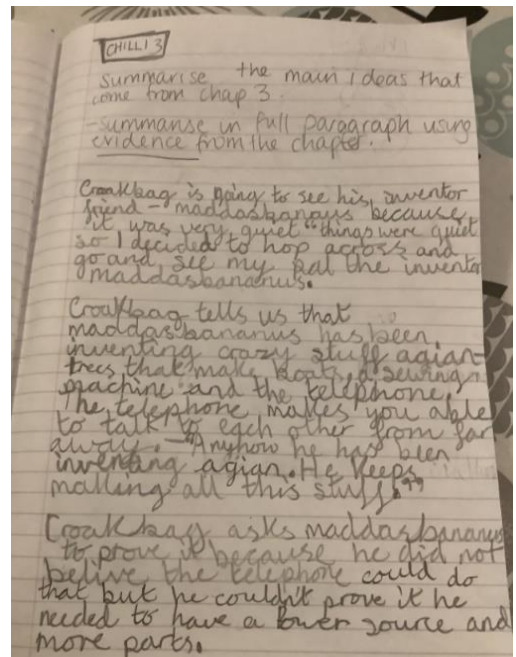 CHILLI 3
summarise the main ideas that
come from chap 3.
-summarise in full paragraph using
evidence from the chapter.
Croakbag is going to see his inventor
friend - maddasbananus because
it was very quiet "things were quiet
so I decided to hop across and
go and see my pal the inventor
maddasbananus.
Croakbag tells us that
maddasbananus has been
inventing crazy stuff agian-
trees that make boats, a sewing
machine and the telephone.
The telephone makes you able
to talk to each other from far
away. - "Anyhow he has been
inventing agian. He keeps
making all this stuff."
Croakbag asks maddasbananus
to prove it because he did not
belive the telephone could do
that but he couldn't prove it he
needed to have a power source and
more parts.